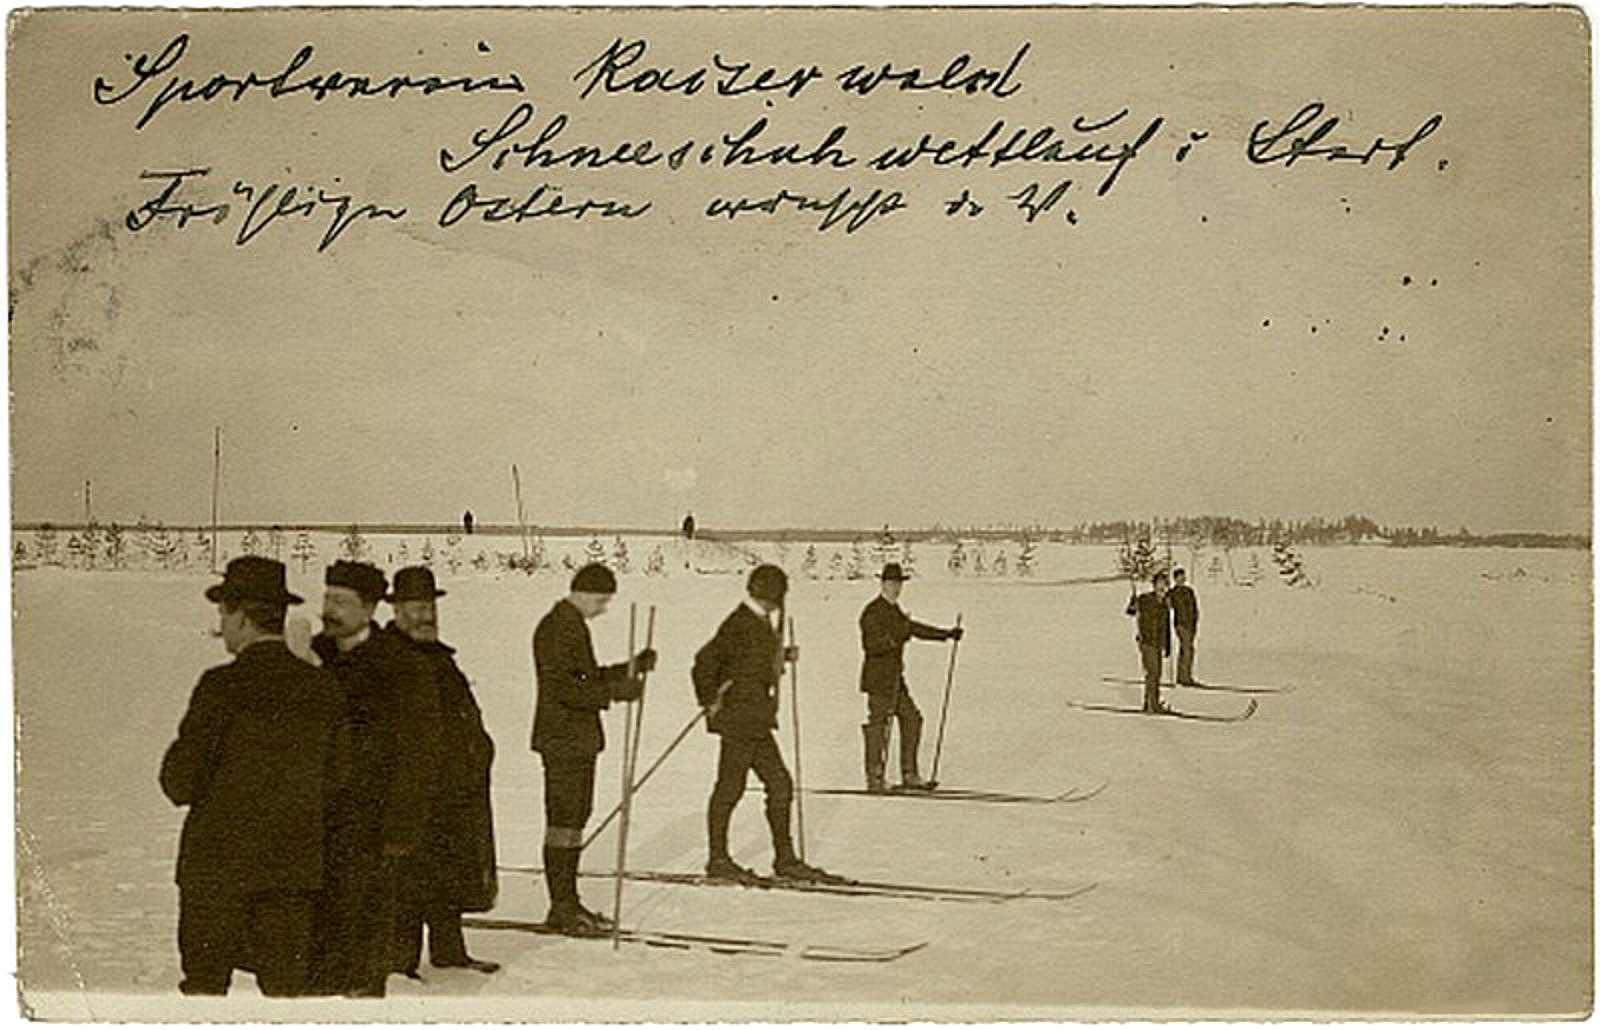 Sportverein Kaiserwald
Schneeschuhwettlauf : Start.
Fröhliche Ostern wünscht